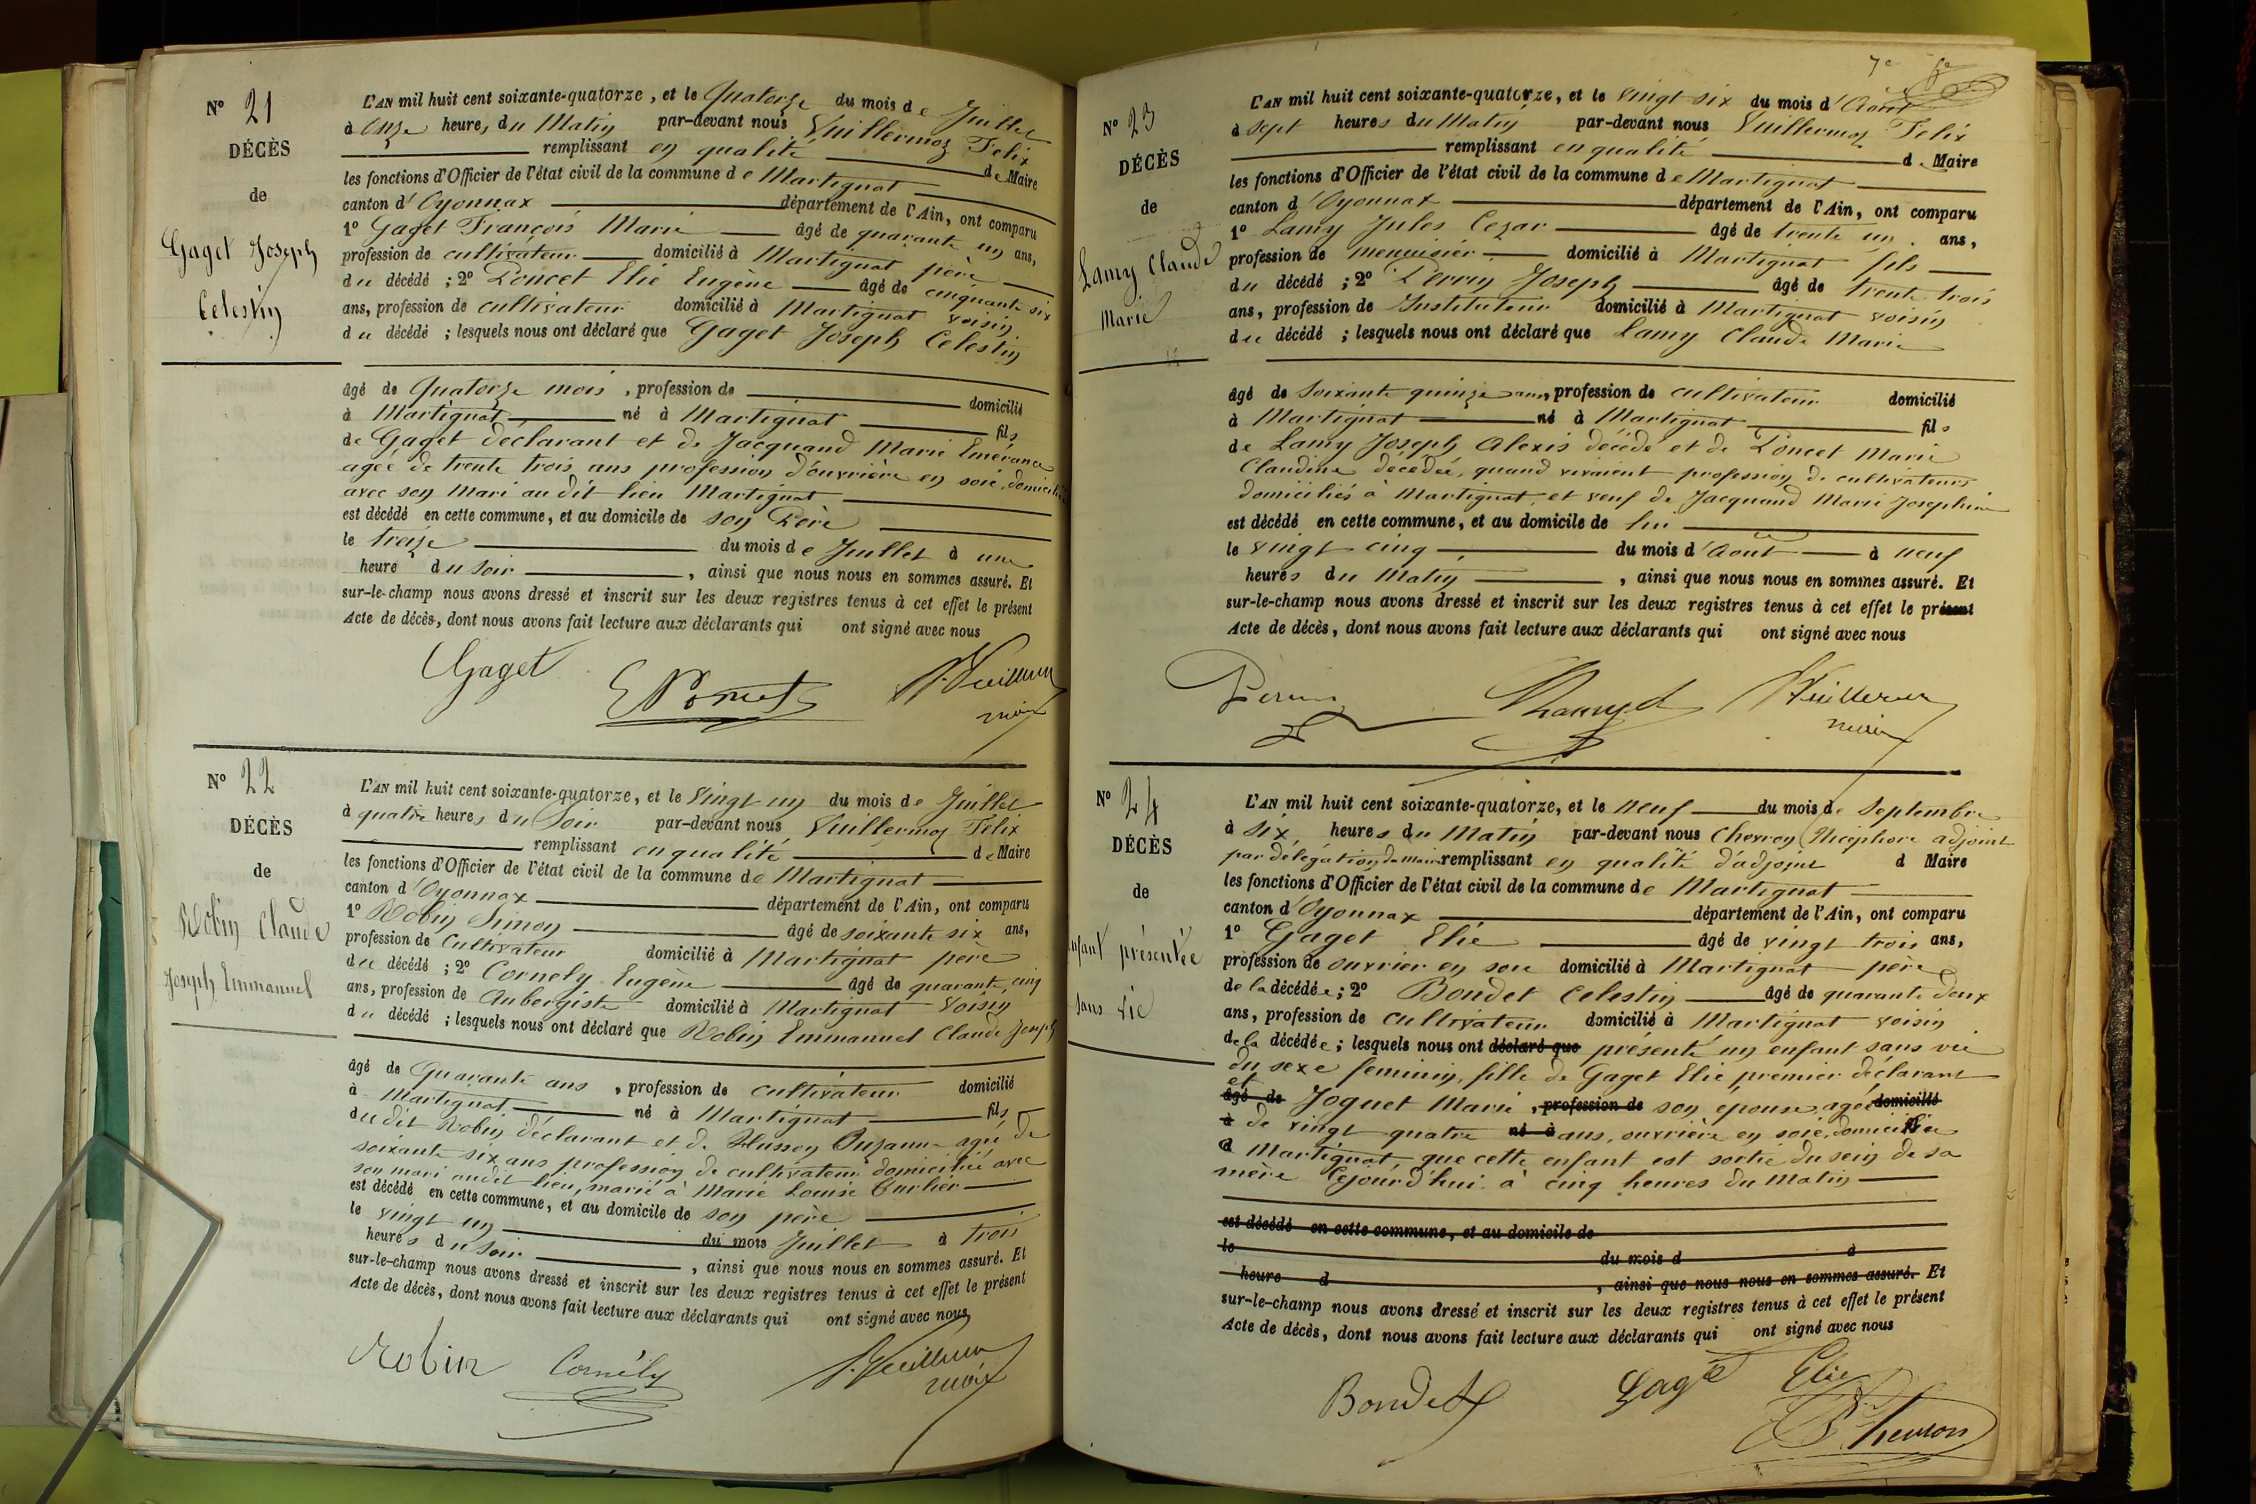 N° 21
DÉCÈS
de
Gaget Joseph
Celestin
L'AN mil huit cent soixante-quatorze, et le Quatorze du mois de Juillet
à Onze heures du Matin par-devant nous Vuillermoz Felix
remplissant en qualité de Maire
les fonctions d'Officier de l'état civil de la commune de Martignat
canton d'Oyonnax département de l'Ain, ont comparu
1° Gaget François Marie âgé de quarante un ans,
profession de cultivateur domicilié à Martignat père
du décédé ; 2° Poncet Elie Eugène âgé de cinquante six
ans, profession de cultivateur domicilié à Martignat voisin
du décédé ; lesquels nous ont déclaré que Gaget Joseph Celestin
âgé de Quatorze mois, profession de domicilié
à Martignat né à Martignat fils
de Gaget déclarant et de Jacquand Marie Emérance
agée de trente trois ans profession d'ouvrière en soie, domiciliée
avec son Mari au dit lieu Martignat
est décédé en cette commune, et au domicile de son Père
le treize du mois de Juillet à une
heure du soir, ainsi que nous nous en sommes assuré. Et
sur-le-champ nous avons dressé et inscrit sur les deux registres tenus à cet effet le présent
Acte de décès, dont nous avons fait lecture aux déclarants qui ont signé avec nous
Gaget E Poncet F. Vuillermoz
maire
N° 22
DÉCÈS
de
Robin Claude
Joseph Emmanuel
L'AN mil huit cent soixante-quatorze, et le Vingt un du mois de Juillet
à quatre heures du Soir par-devant nous Vuillermoz Felix
remplissant en qualité de Maire
les fonctions d'Officier de l'état civil de la commune de Martignat
canton d'Oyonnax département de l'Ain, ont comparu
1° Robin Simon âgé de soixante six ans,
profession de Cultivateur domicilié à Martignat père
du décédé ; 2° Cornely Eugène âgé de quarante cinq
ans, profession de Aubergiste domicilié à Martignat voisin
du décédé ; lesquels nous ont déclaré que Robin Emmanuel Claude Joseph
âgé de Quarante ans, profession de cultivateur domicilié
à Martignat né à Martignat fils
du dit Robin déclarant et de Husson Suzanne agée de
soixante six ans profession de cultivateur domiciliée avec
son mari audit lieu, marié à Marie Louise Carlier
est décédé en cette commune, et au domicile de son père
le vingt un du mois Juillet à trois
heures du soir, ainsi que nous nous en sommes assuré. Et
sur-le-champ nous avons dressé et inscrit sur les deux registres tenus à cet effet le présent
Acte de décès, dont nous avons fait lecture aux déclarants qui ont signé avec nous
Robin Cornély F. Vuillermoz
maire
7e
N° 23
DÉCÈS
de
Lamy Claude
Marie
L'AN mil huit cent soixante-quatorze, et le vingt six du mois d'Aout
à sept heures du Matin par-devant nous Vuillermoz Felix
remplissant en qualité de Maire
les fonctions d'Officier de l'état civil de la commune de Martignat
canton d'Oyonnax département de l'Ain, ont comparu
1° Lamy Jules Cezar âgé de trente un ans,
profession de menuisier domicilié à Martignat fils
du décédé ; 2° Perrin Joseph âgé de trente trois
ans, profession de Instituteur domicilié à Martignat voisin
du décédé ; lesquels nous ont déclaré que Lamy Claude Marie
âgé de soixante quinze ans, profession de cultivateur domicilié
à Martignat né à Martignat fils
de Lamy Joseph Alexis décédé et de Poncet Marie
Claudine décédée, quand vivaient profession de cultivateurs
domiciliés à Martignat, et veuf de Jacquand Marie Josephine
est décédé en cette commune, et au domicile de lui
le vingt cinq du mois d'Aout à neuf
heures du Matin, ainsi que nous nous en sommes assuré. Et
sur-le-champ nous avons dressé et inscrit sur les deux registres tenus à cet effet le présent
Acte de décès, dont nous avons fait lecture aux déclarants qui ont signé avec nous
Perrin Lamy F. Vuillermoz
maire
N° 24
DÉCÈS
de
enfant présentée
sans vie
L'AN mil huit cent soixante-quatorze, et le neuf du mois de Septembre
à six heures du Matin par-devant nous Chevron Nicéphore adjoint
par délégation du Maire remplissant en qualité d'adjoint d Maire
les fonctions d'Officier de l'état civil de la commune de Martignat
canton d'Oyonnax département de l'Ain, ont comparu
1° Gaget Elie âgé de vingt trois ans,
profession de ouvrier en soie domicilié à Martignat père
de la décédée ; 2° Bondet Celestin âgé de quarante deux
ans, profession de cultivateur domicilié à Martignat voisin
de la décédée ; lesquels nous ont déclaré que présenté un enfant sans vie
du sexe feminin, fille de Gaget Elie premier déclarant
et
âgé de Joguet Marie, profession de son épouse, agée domicilié
à de vingt quatre né à ans, ouvrière en soie, domiciliée
à Martignat, que cette enfant est sortie du sein de sa
mère Cejourd'hui à cinq heures du Matin
est décédé en cette commune, et au domicile de
le du mois d à
heure d, ainsi que nous nous en sommes assuré. Et
sur-le-champ nous avons dressé et inscrit sur les deux registres tenus à cet effet le présent
Acte de décès, dont nous avons fait lecture aux déclarants qui ont signé avec nous
Bondet Gaget Elie
Chevron